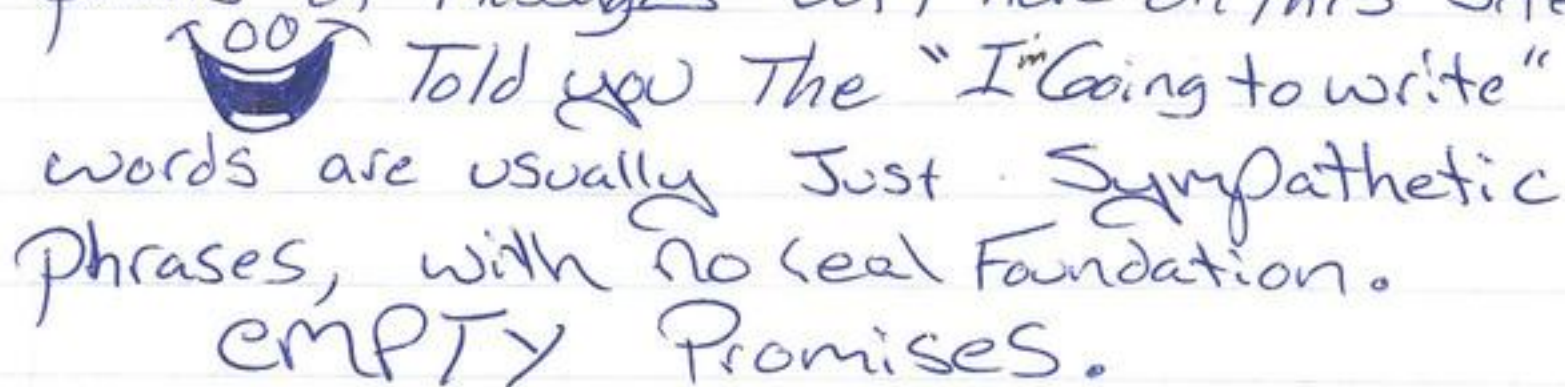 on this site
Told you The "I'm Going to write"
words are usually Just Sympathetic
Phrases, with no real Foundation.
EMPTY Promises.